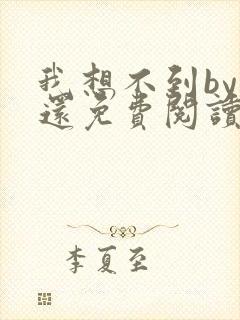 我想不到by
還免費閱讀
李夏至